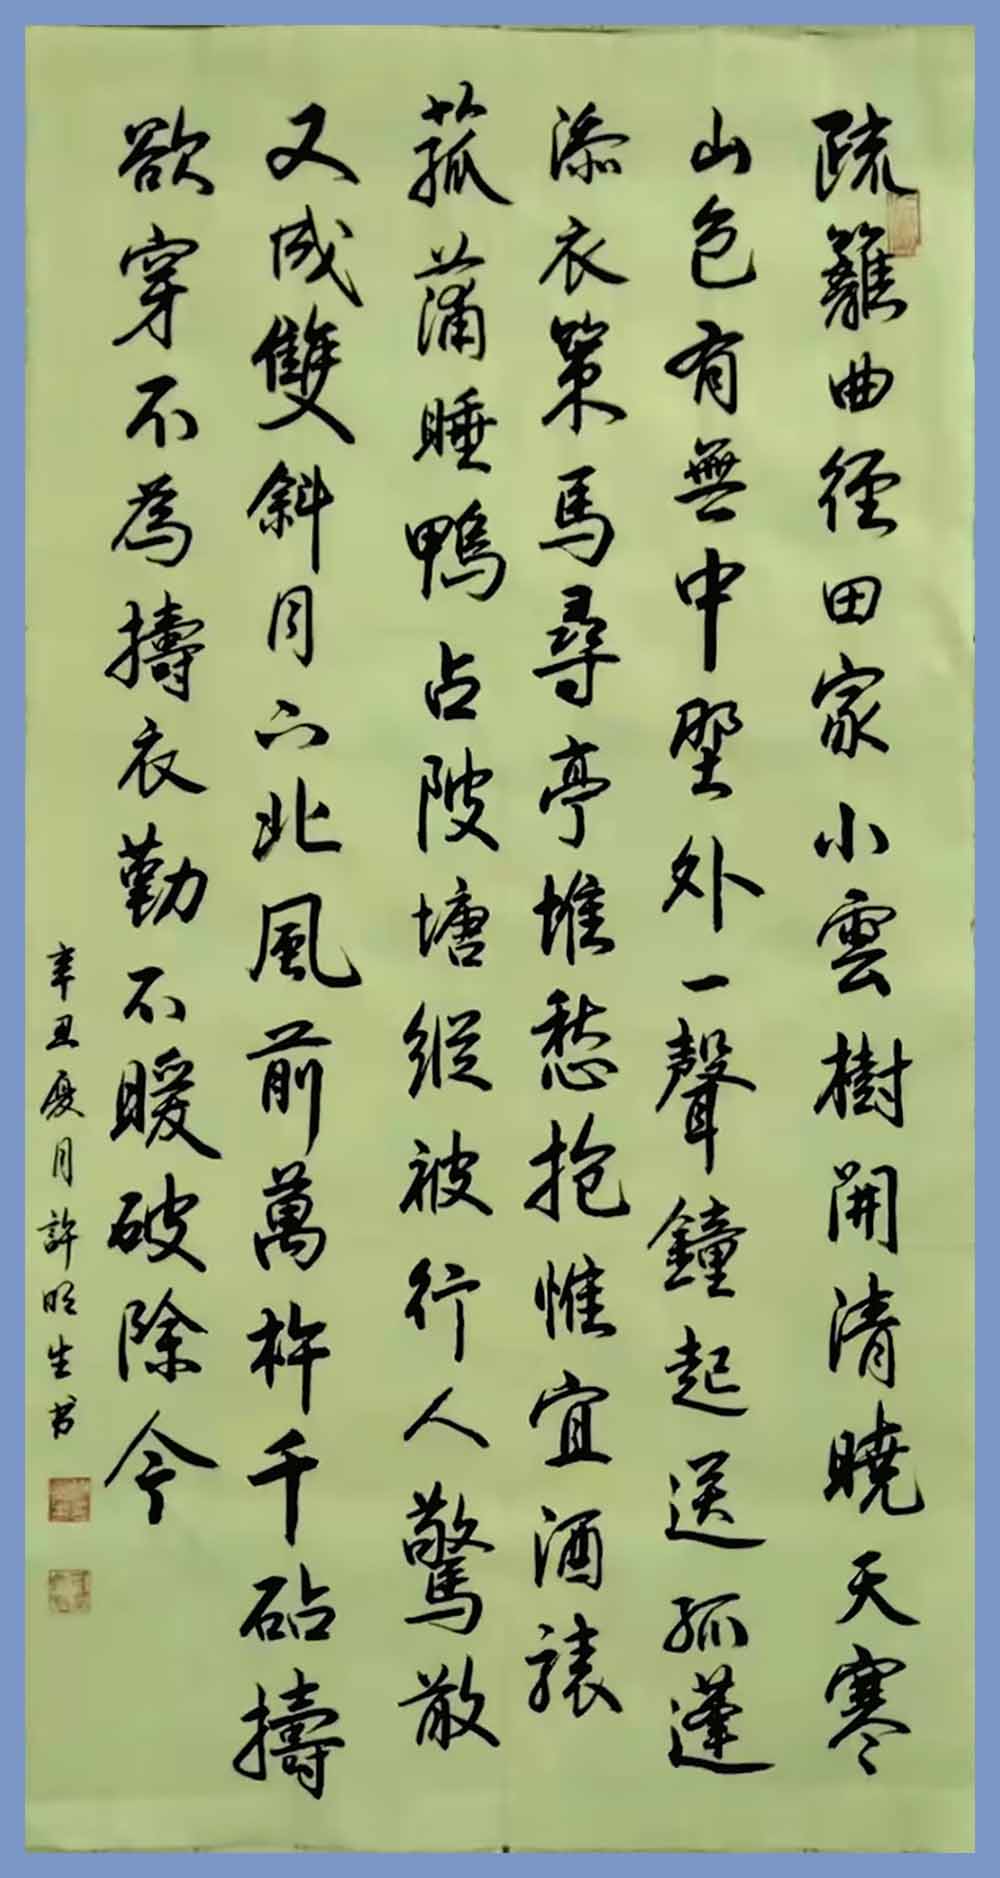 疏籬曲徑田家小雲樹開清曉天寒
山色有無中野外一聲鐘起送孤蓬
添衣策馬尋亭堠愁抱惟宜酒裱
菰蒲睡鴨占陂塘縱被行人驚散
又成雙斜月下北風前萬杵千砧擣
欲穿不為擣衣勤不暖破除今
辛丑夏月許明生书